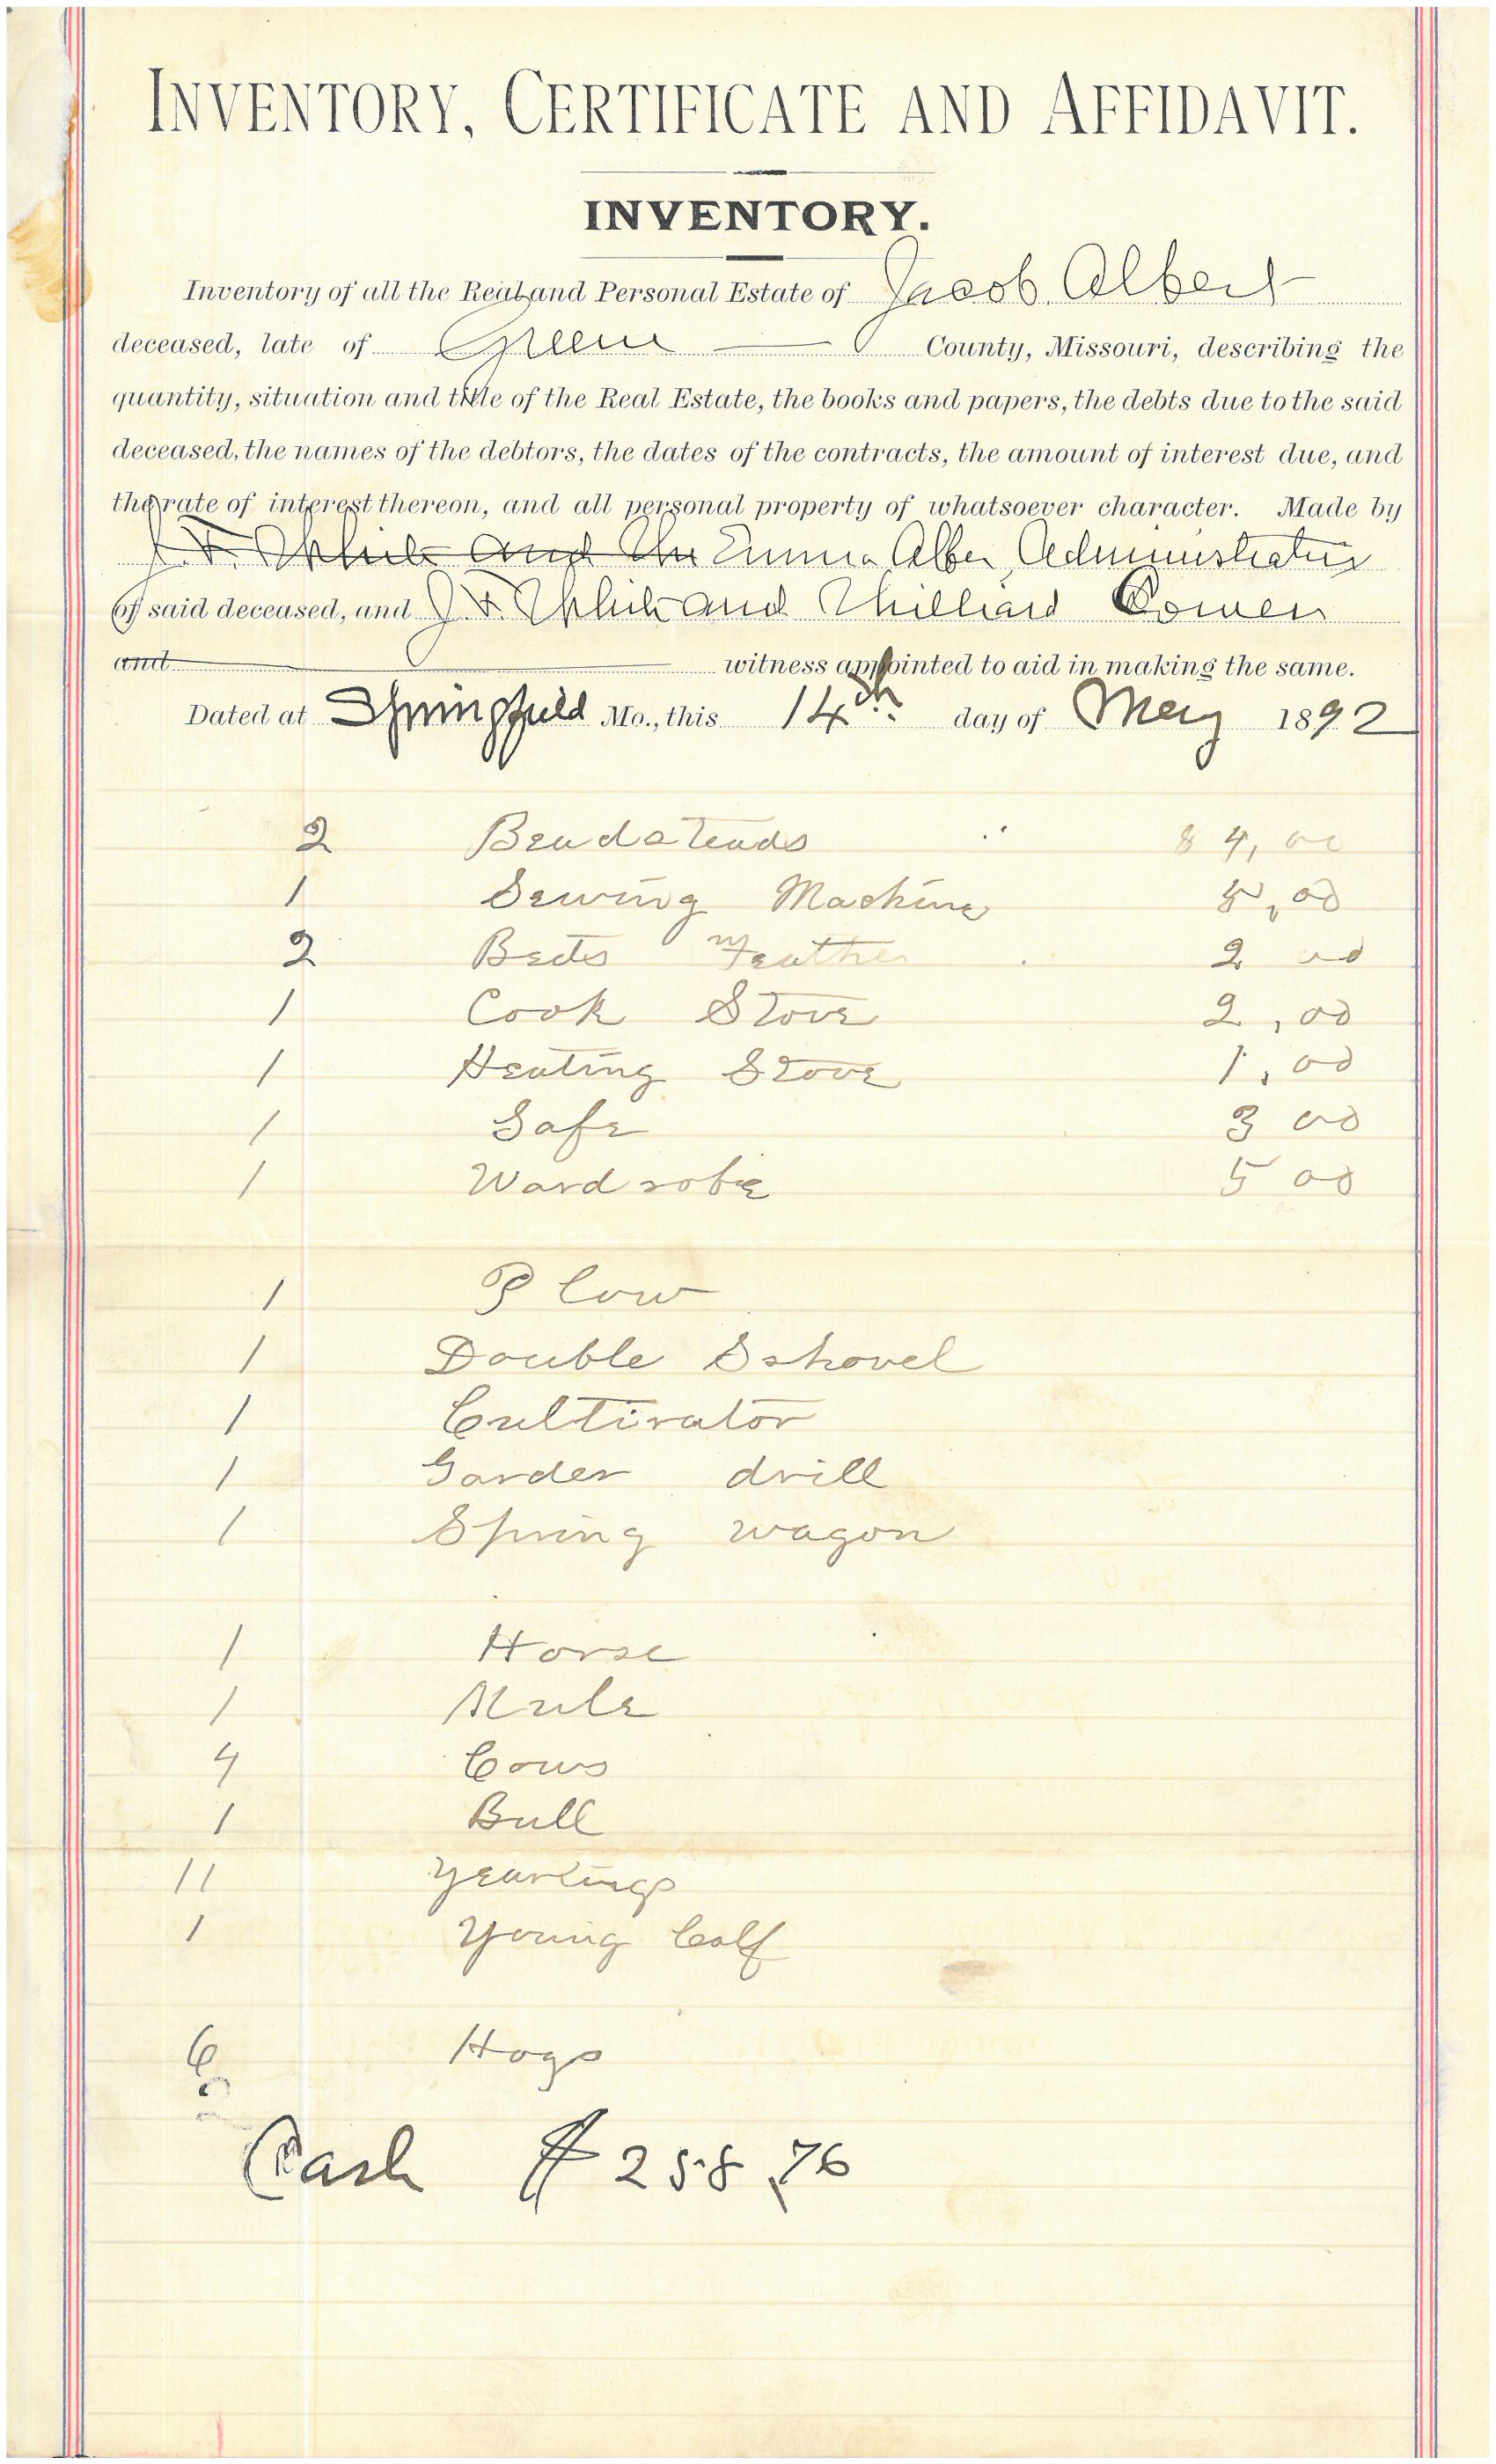 INVENTORY, CERTIFICATE AND AFFIDAVIT.
INVENTORY.
Inventory of all the Real and Personal Estate of Jacob Albert
deceased, late of Green County, Missouri, describing the
quantity, situation and title of the Real Estate, the books and papers, the debts due to the said
deceased, the names of the debtors, the dates of the contracts, the amount of interest due, and
the rate of interest thereon, and all personal property of whatsoever character. Made by
J. F. White and Emma Alber Administratrix
of said deceased, and J. F. White and
and witness appointed to aid in making the same.
Dated at Springfield Mo., this 14th day of May 1892
2 Beadsteads $ 4,00
1 Sewing Machine 5,00
2 Beds Feather 2 00
1 Cook Stove 2,00
1 Heating Stove 1,00
1 Safe 3 00
1 Wardrobe 5 00
1 Plow
1 Double Sshovel
1 Cultivator
1 Garden drill
1 Spring wagon
1 Horse
1 Mule
4 Cows
1 Bull
11 Yearlings
1 Young Calf
6 Hogs
Cash $258,76